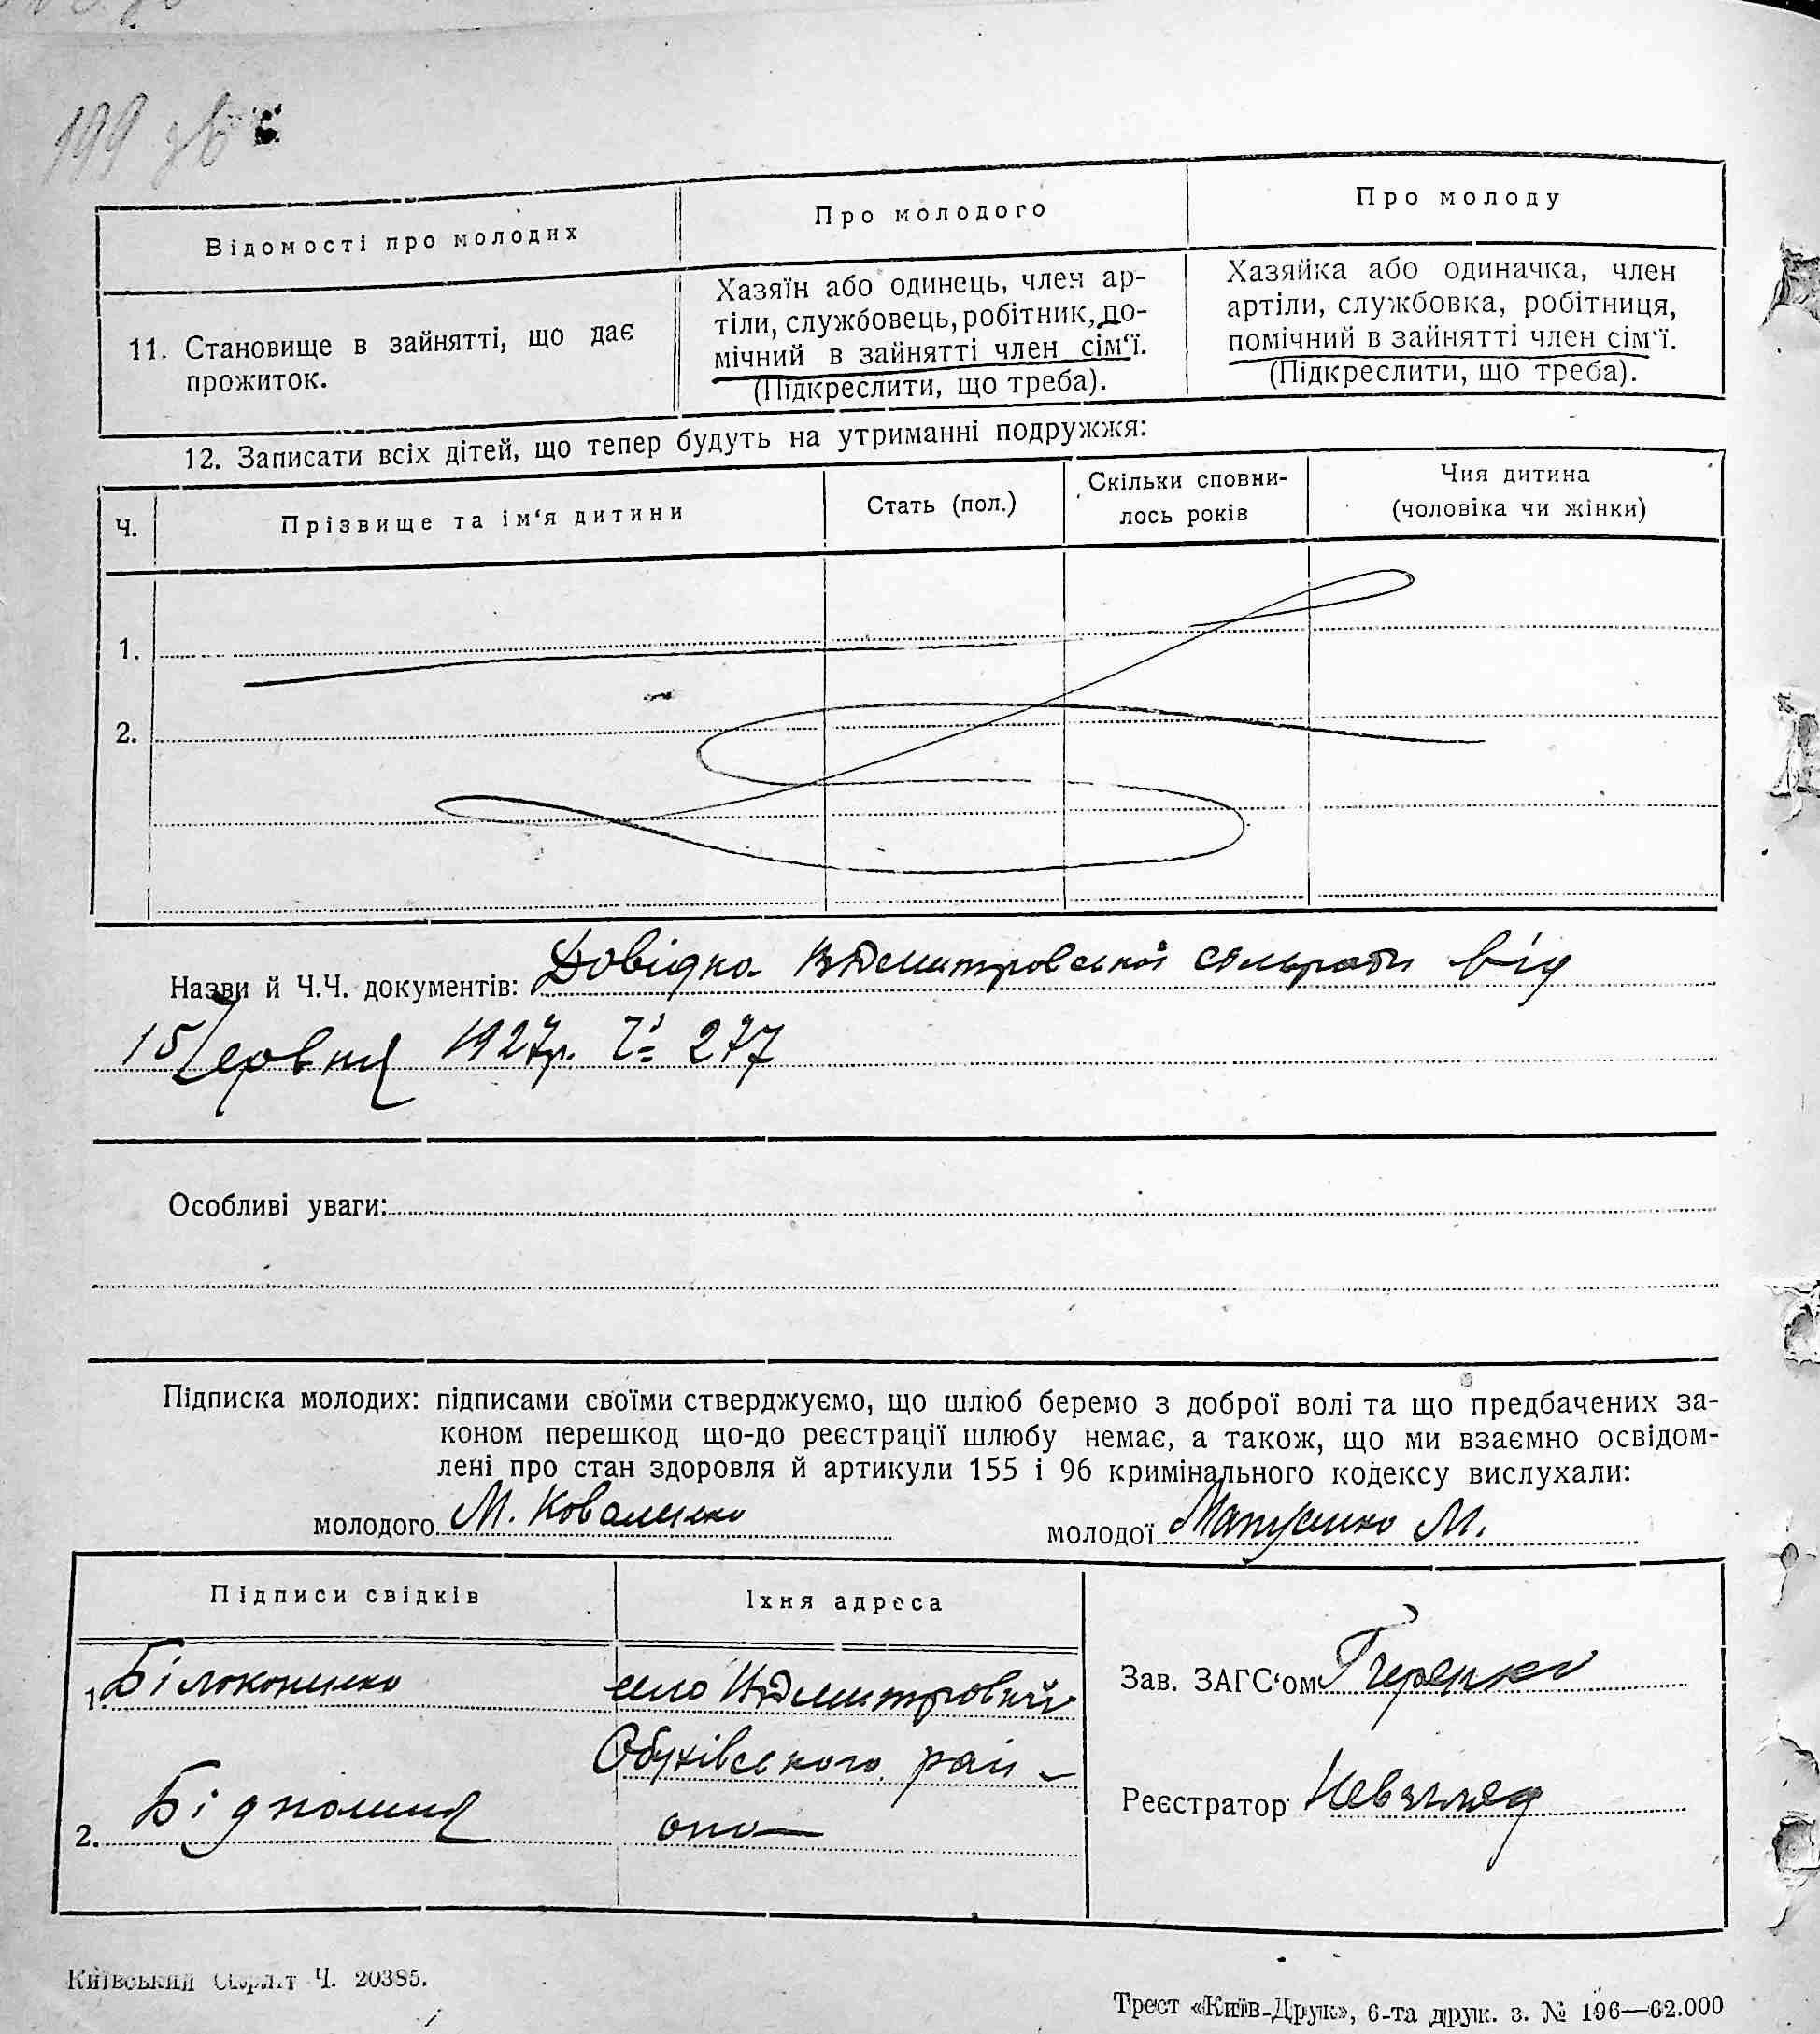 199 зв
Відомості про молодих
Про молодого
Про молоду
11. Становище в зайнятті, що дає
прожиток.
Хазяїн або одинець, член ар-
тіли, службовець, робітник, по-
мічний в зайнятті член сім'ї.
(Підкреслити, що треба).
Хазяйка або одиначка, член
артіли, службовка, робітниця,
помічний в зайнятті член сім'ї.
(Підкреслити, що треба).
12. Записати всіх дітей, що тепер будуть на утриманні подружжя:
Ч.
Прізвище та ім'я дитини
Стать (пол.)
Скільки сповни-
лось років
Чия дитина
(чоловіка чи жінки)
1.
2.
Назви й Ч.Ч. документів: Довідка сільради від
15 Червня 1927р. Ч 277
Особливі уваги:
Підписка молодих: підписами своїми стверджуємо, що шлюб беремо з доброї волі та що предбачених за-
коном перешкод що-до реєстрації шлюбу немає, а також, що ми взаємно освідом-
лені про стан здоровля й артикули 155 і 96 кримінального кодексу вислухали:
молодого М. Коваленко
молодої М.
Підписи свідків
Їхня адреса
1. Білоконенко
село
Обухівського рай-
ону
2.
Зав. ЗАГС'ом
Реєстратор
Київський Ч. 20385.
Трест «Київ-Друк», 6-та друк. з. № 196—62.000